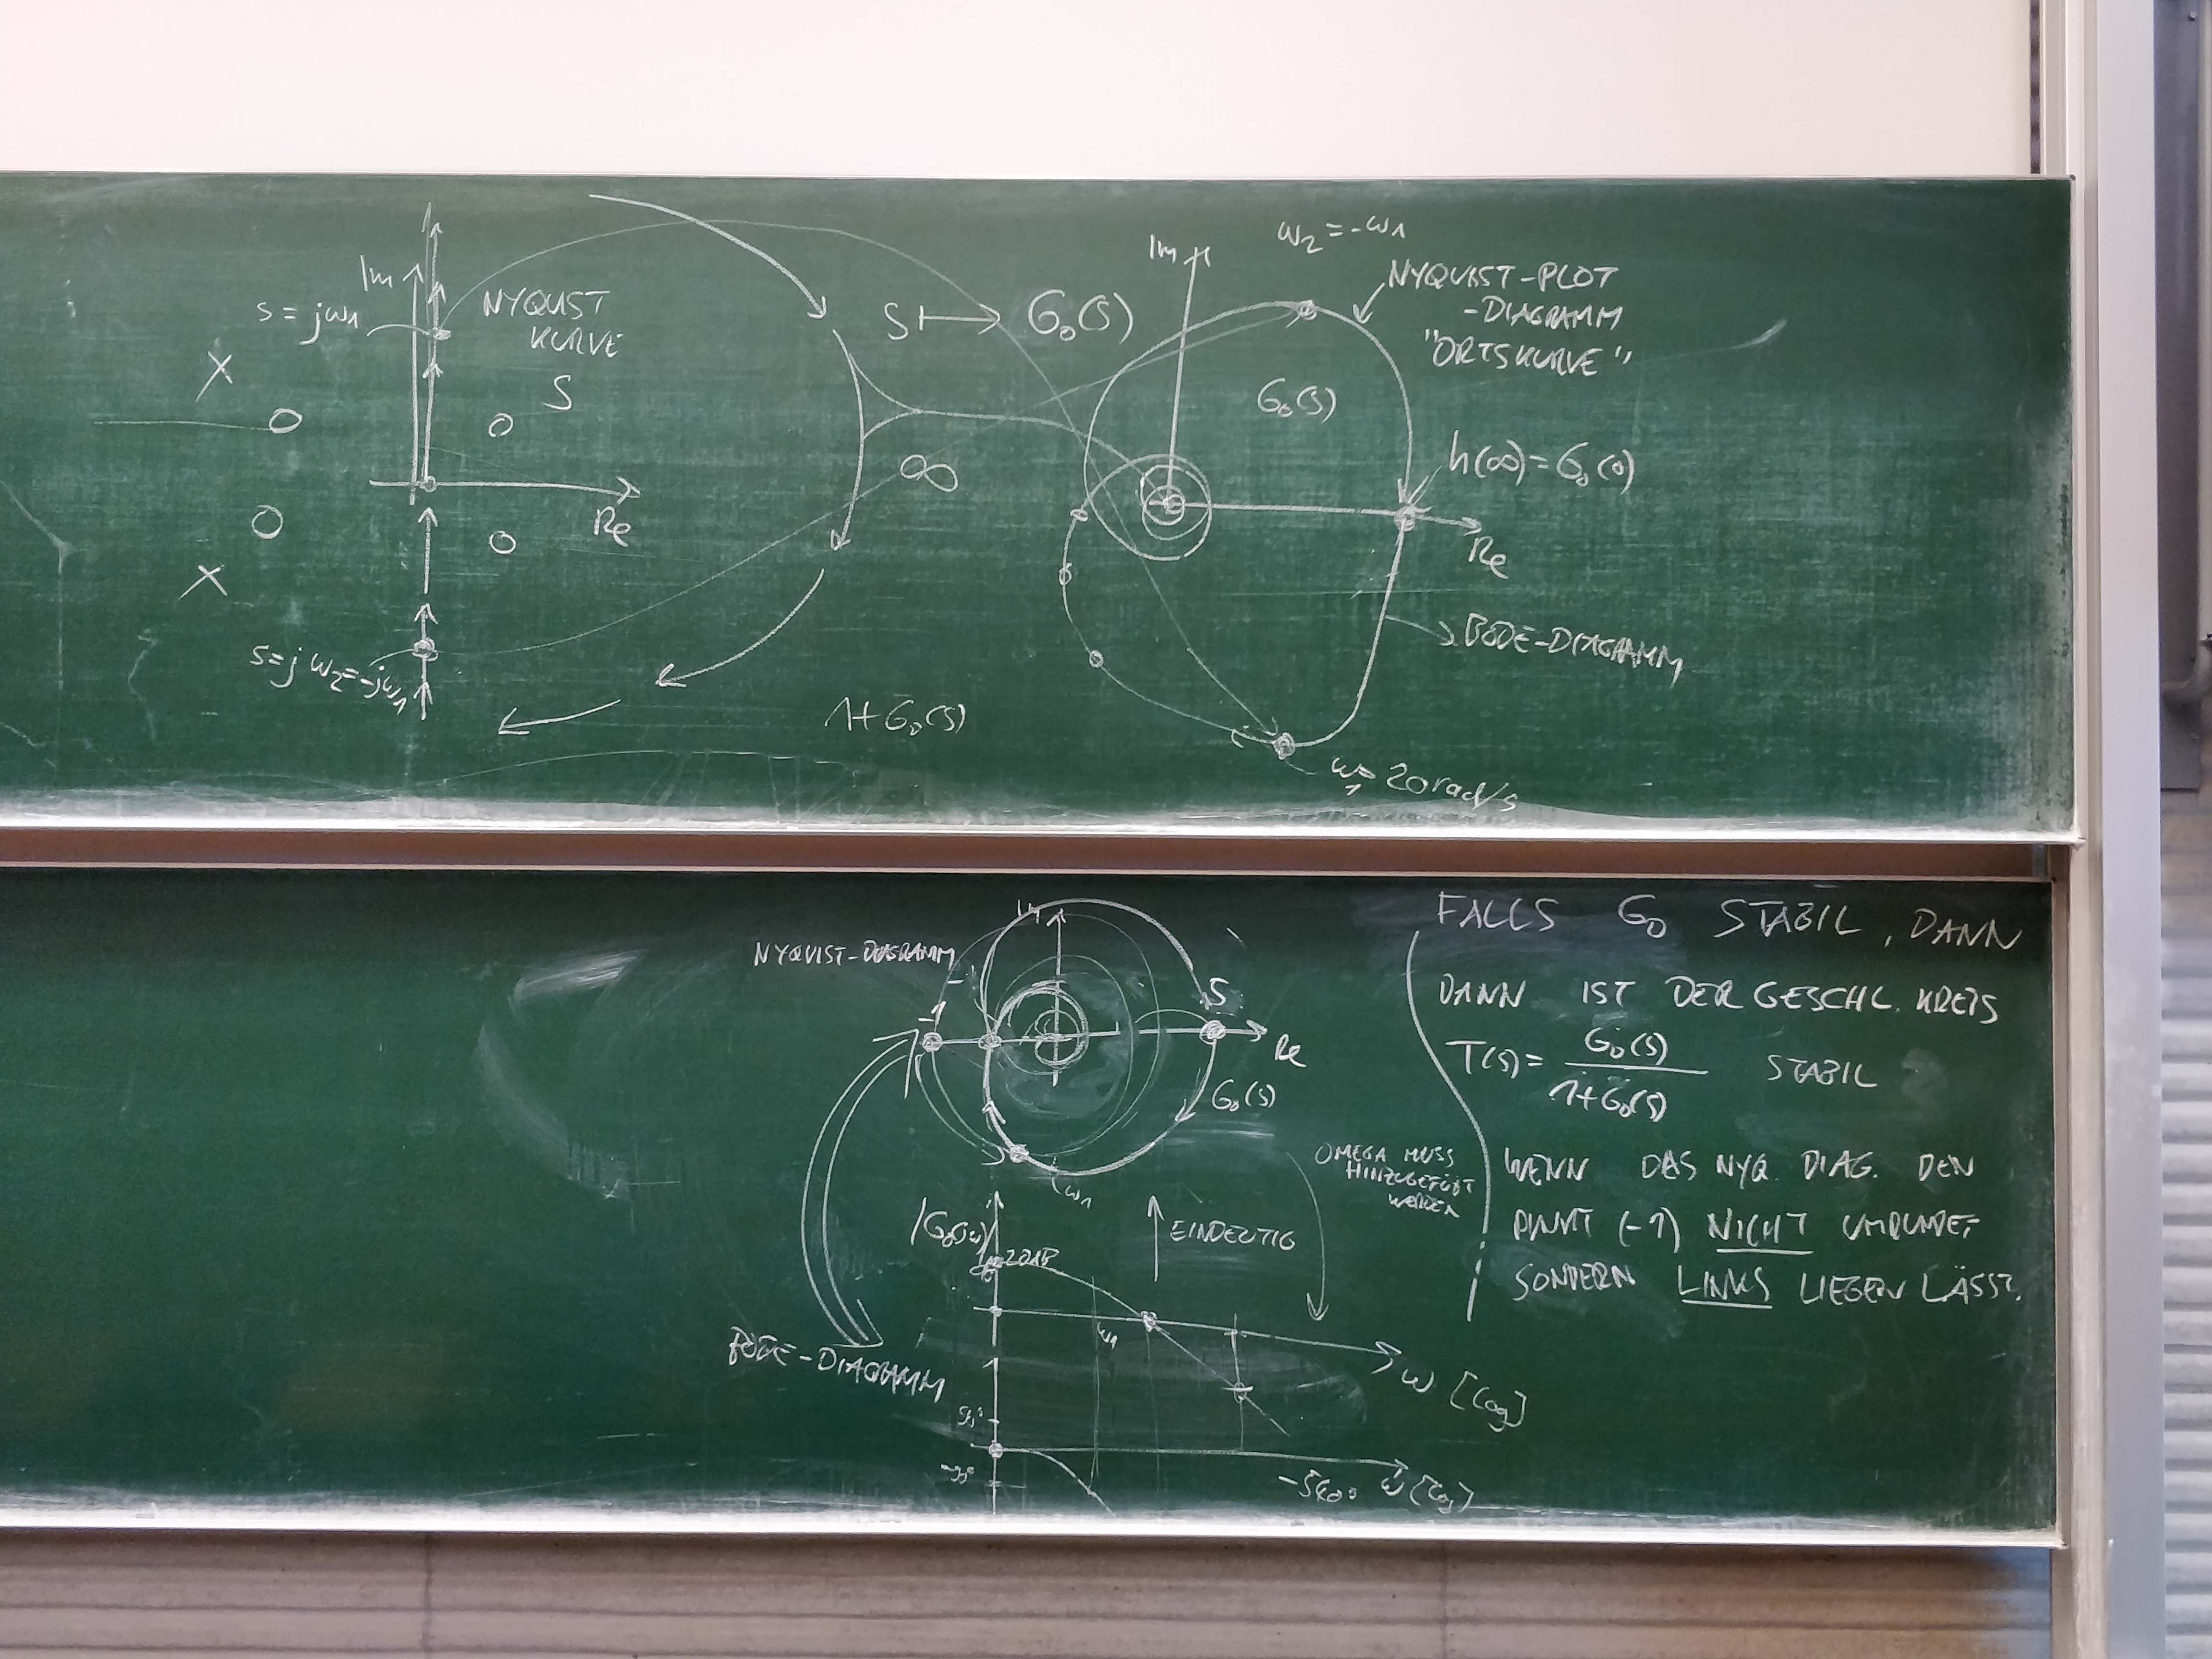 Im
s = jω1
NYQUIST
KURVE
S
Re
s = jω2 = -jω1
S ↦ G0(s)
∞
1+G0(s)
ω2 = -ω1
Im
NYQUIST-PLOT
-DIAGRAMM
"ORTSKURVE"
G0(s)
h(∞) = G0(0)
Re
BODE-DIAGRAMM
ω1 = 20 rad/s
NYQUIST-DIAGRAMM
Im
-1
5
Re
G0(s)
ω1
|G0(jω)|
20dB
EINDEUTIG
OMEGA MUSS
HINZUGEFÜGT
WERDEN
ω1
ω [log]
BODE-DIAGRAMM
-90°
-540°
ω [log]
FALLS G0 STABIL, DANN
DANN IST DER GESCHL. KREIS
T(s) = G0(s) / 1+G0(s) STABIL
WENN DAS NYQ. DIAG. DEN
PUNKT (-1) NICHT UMRUNDET
SONDERN LINKS LIEGEN LÄSST.